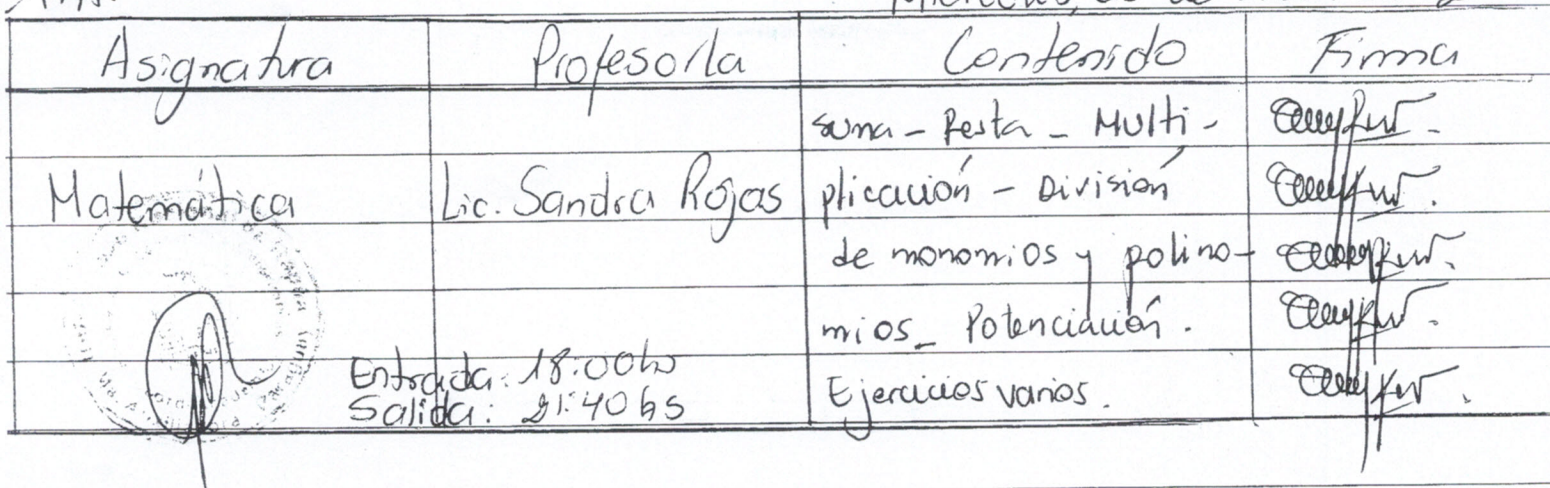 Asignatura Profesor/a Contenido Firma
suma - Resta - Multi -
Matemática Lic. Sandra Rojas plicación - División
de monomios y polino-
mios - Potenciación.
Entrada: 18:00hs
Salida: 21:40 hs
Ejercicios varios.